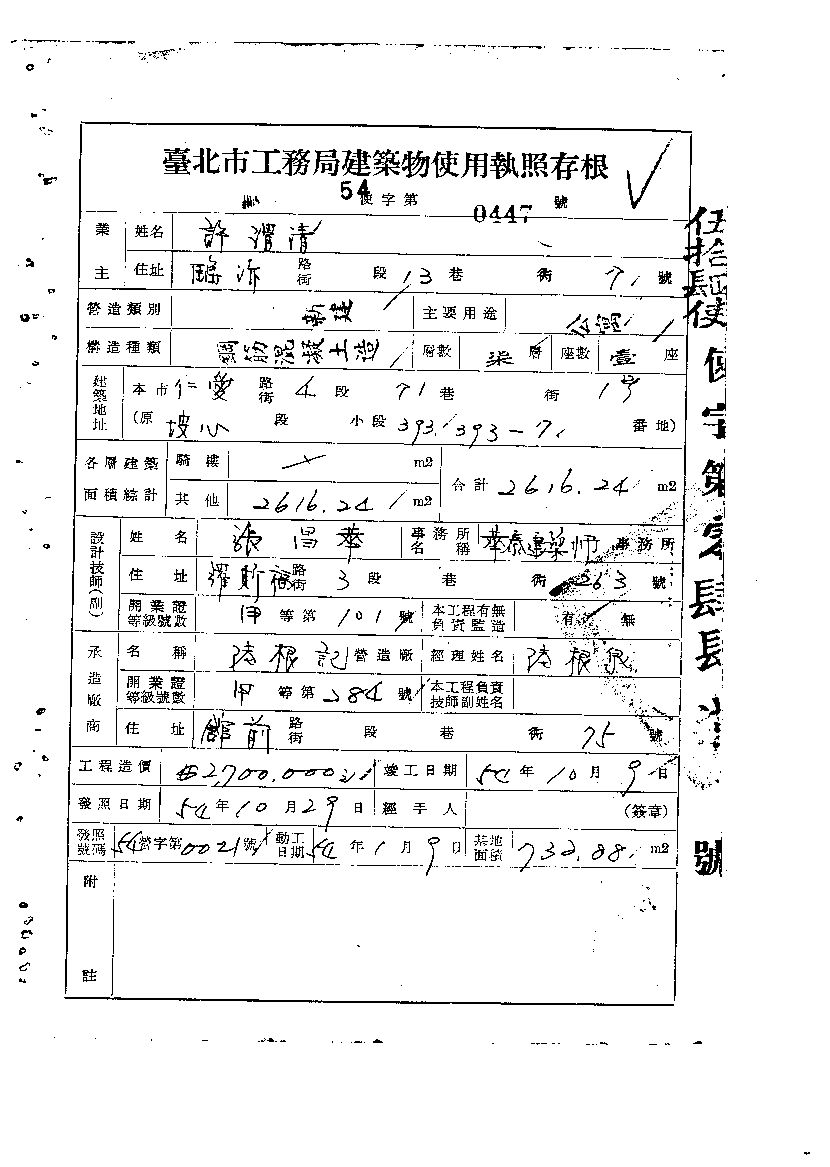 臺北市工務局建築物使用執照存根
54 使字第 0447 號
業主 姓名 許渭清
住址 臨沂 路街 段 13 巷 街 71 號
營造類別 新建 主要用途 公寓
構造種類 鋼筋混凝土造 層數 柒 層 座數 壹 座
建築地址 本市 仁愛 路街 4 段 71 巷 街 1 號
(原 坡心 段 小段 393/393-7 番地)
各層建築面積綜計 騎樓 m2 合計 2616.24 m2
其他 2616.24 m2
設計技師(副) 姓名 張昌華 事務所名稱 華泰建築師 事務所
住址 羅斯福 路街 3 段 巷 街 263 號
開業證等級號數 甲 等第 101 號 本工程有無負責監造 有 無
承造廠商 名稱 陸根記 營造廠 經理姓名 陸根泉
開業證等級號數 甲 等第 284 號 本工程負責技師副姓名
住址 館前 路街 段 巷 街 75 號
工程造價 2,700,000 竣工日期 54 年 10 月 9 日
發照日期 54 年 10 月 29 日 經手人 (簽章)
發照號碼 54 營字第 0021 號 動工日期 54 年 1 月 9 日 基地面積 732.88 m2
附註
伍拾肆使
使字第零肆肆 號